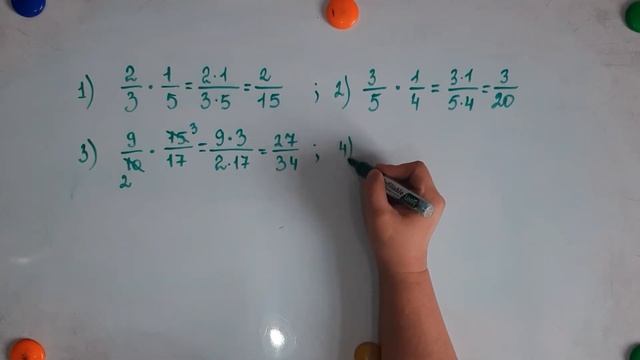 1) 2/3 · 1/5 = 2·1/3·5 = 2/15 ; 2) 3/5 · 1/4 = 3·1/5·4 = 3/20
3) 9/10 2 · 15 3/17 = 9·3/2·17 = 27/34 ; 4)